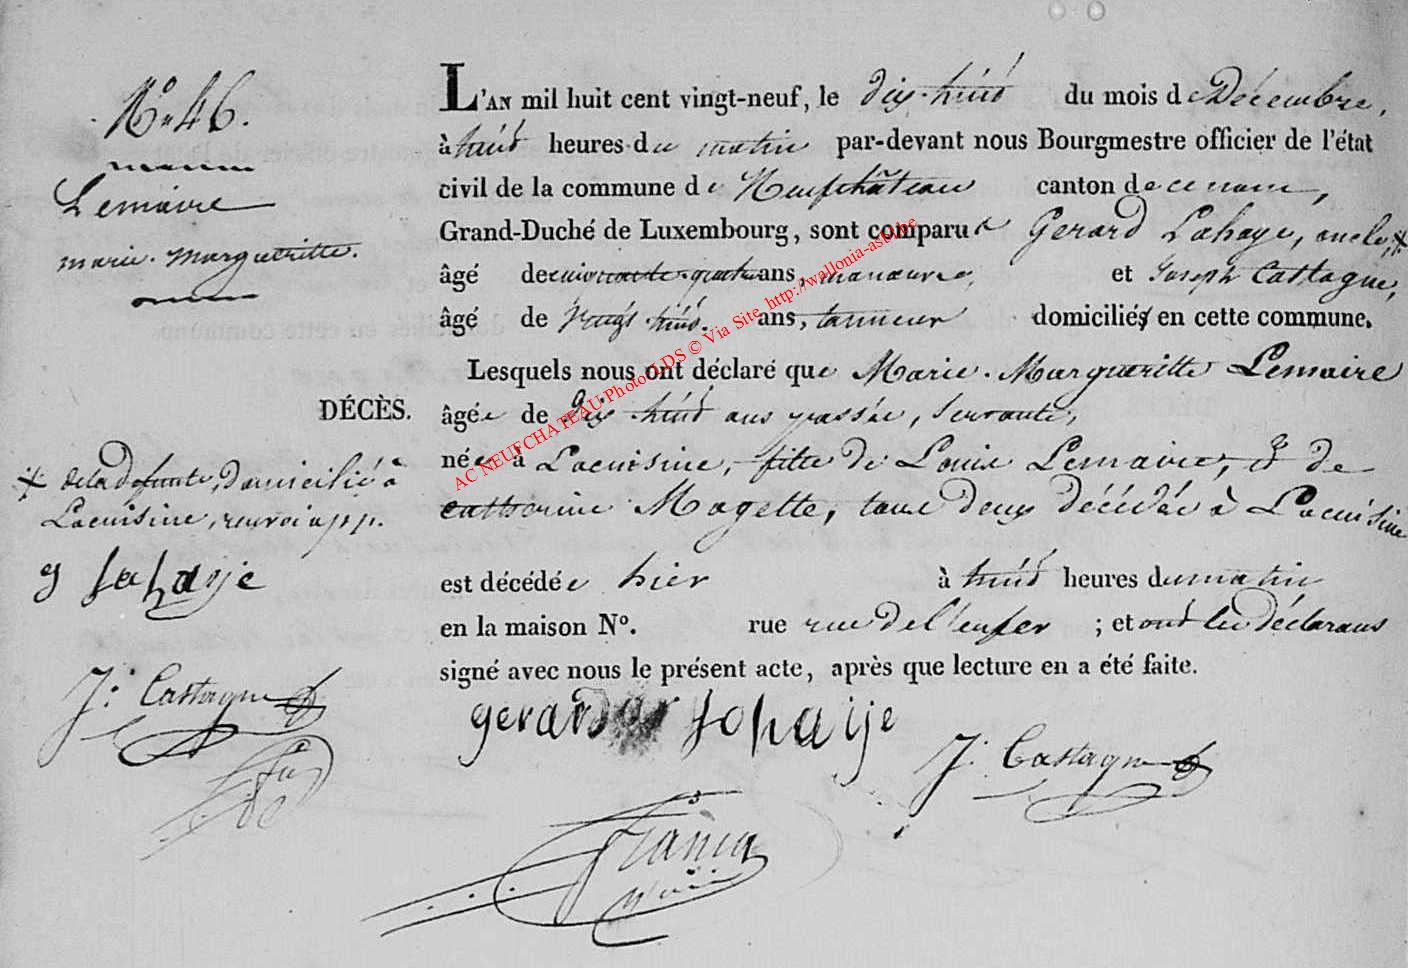 N° 46.
Lemaire
marie-Margueritte.
L'AN mil huit cent vingt-neuf, le dix-huit du mois de Décembre,
à huit heures du matin par-devant nous Bourgmestre officier de l'état
civil de la commune de Neufchâteau canton de ce nom,
Grand-Duché de Luxembourg, sont comparus Gerard Lahaye, oncle, *
âgé de cinquante-quatre ans, manœuvre, et Joseph Castagne,
âgé de vingt-huit. ans, tanneur domiciliés en cette commune.
Lesquels nous ont déclaré que Marie-Margueritte Lemaire
DÉCÈS.
âgée de dix-huit ans passée, servante,
née à Lacuisine, fille de Louis Lemaire, & de
Catherine Magette, tous deux décédés à Lacuisine
* de la defunte, domicilié à
Lacuisine, renvoi app.
g Lahaije
est décédée hier à huit heures du matin
en la maison N°. rue rue de l'enfer ; et ont les déclarans
signé avec nous le présent acte, après que lecture en a été faite.
J: Castagne
gerard Lahaije
J. Castagne
AC NEUFCHATEAU Photo LDS © Via Site http://wallonia-asbl.be